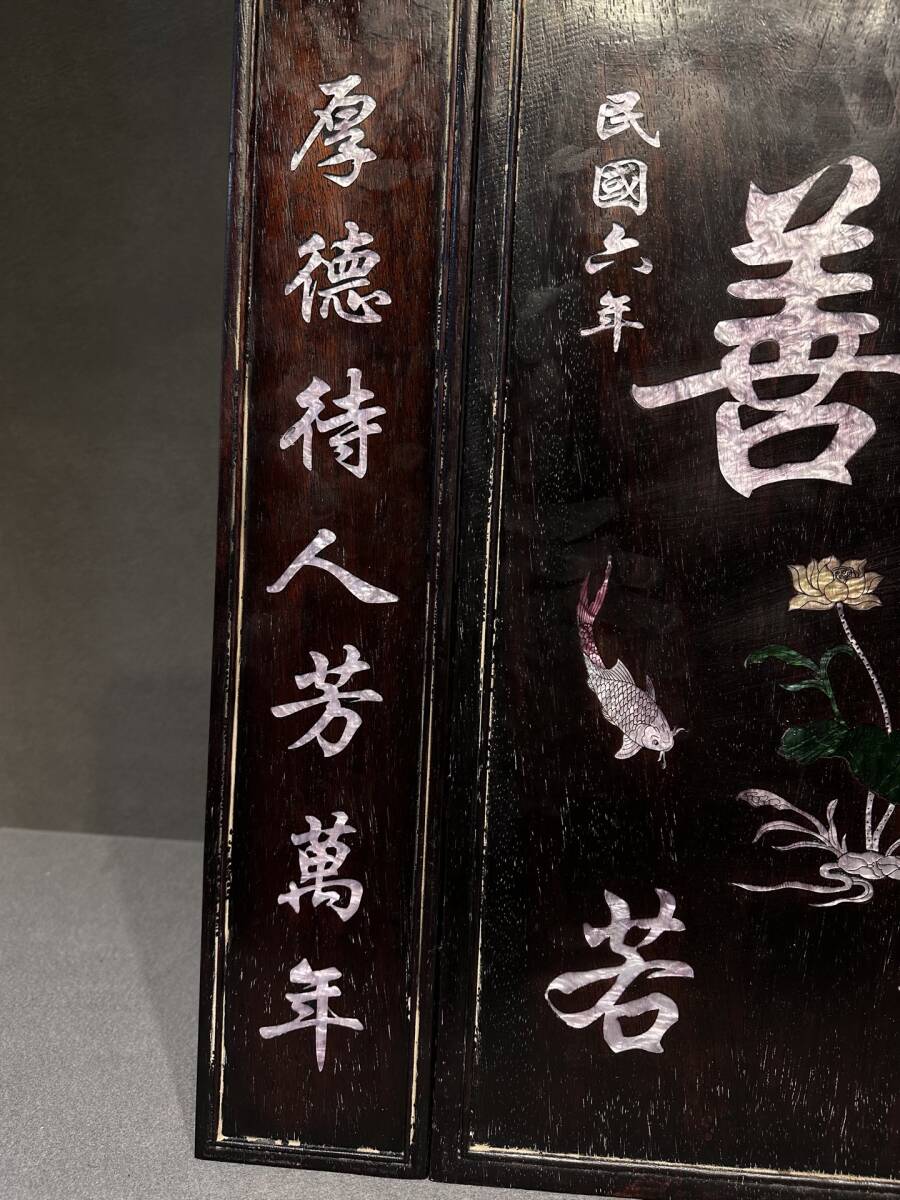 厚德待人芳萬年
民國六年
善
若